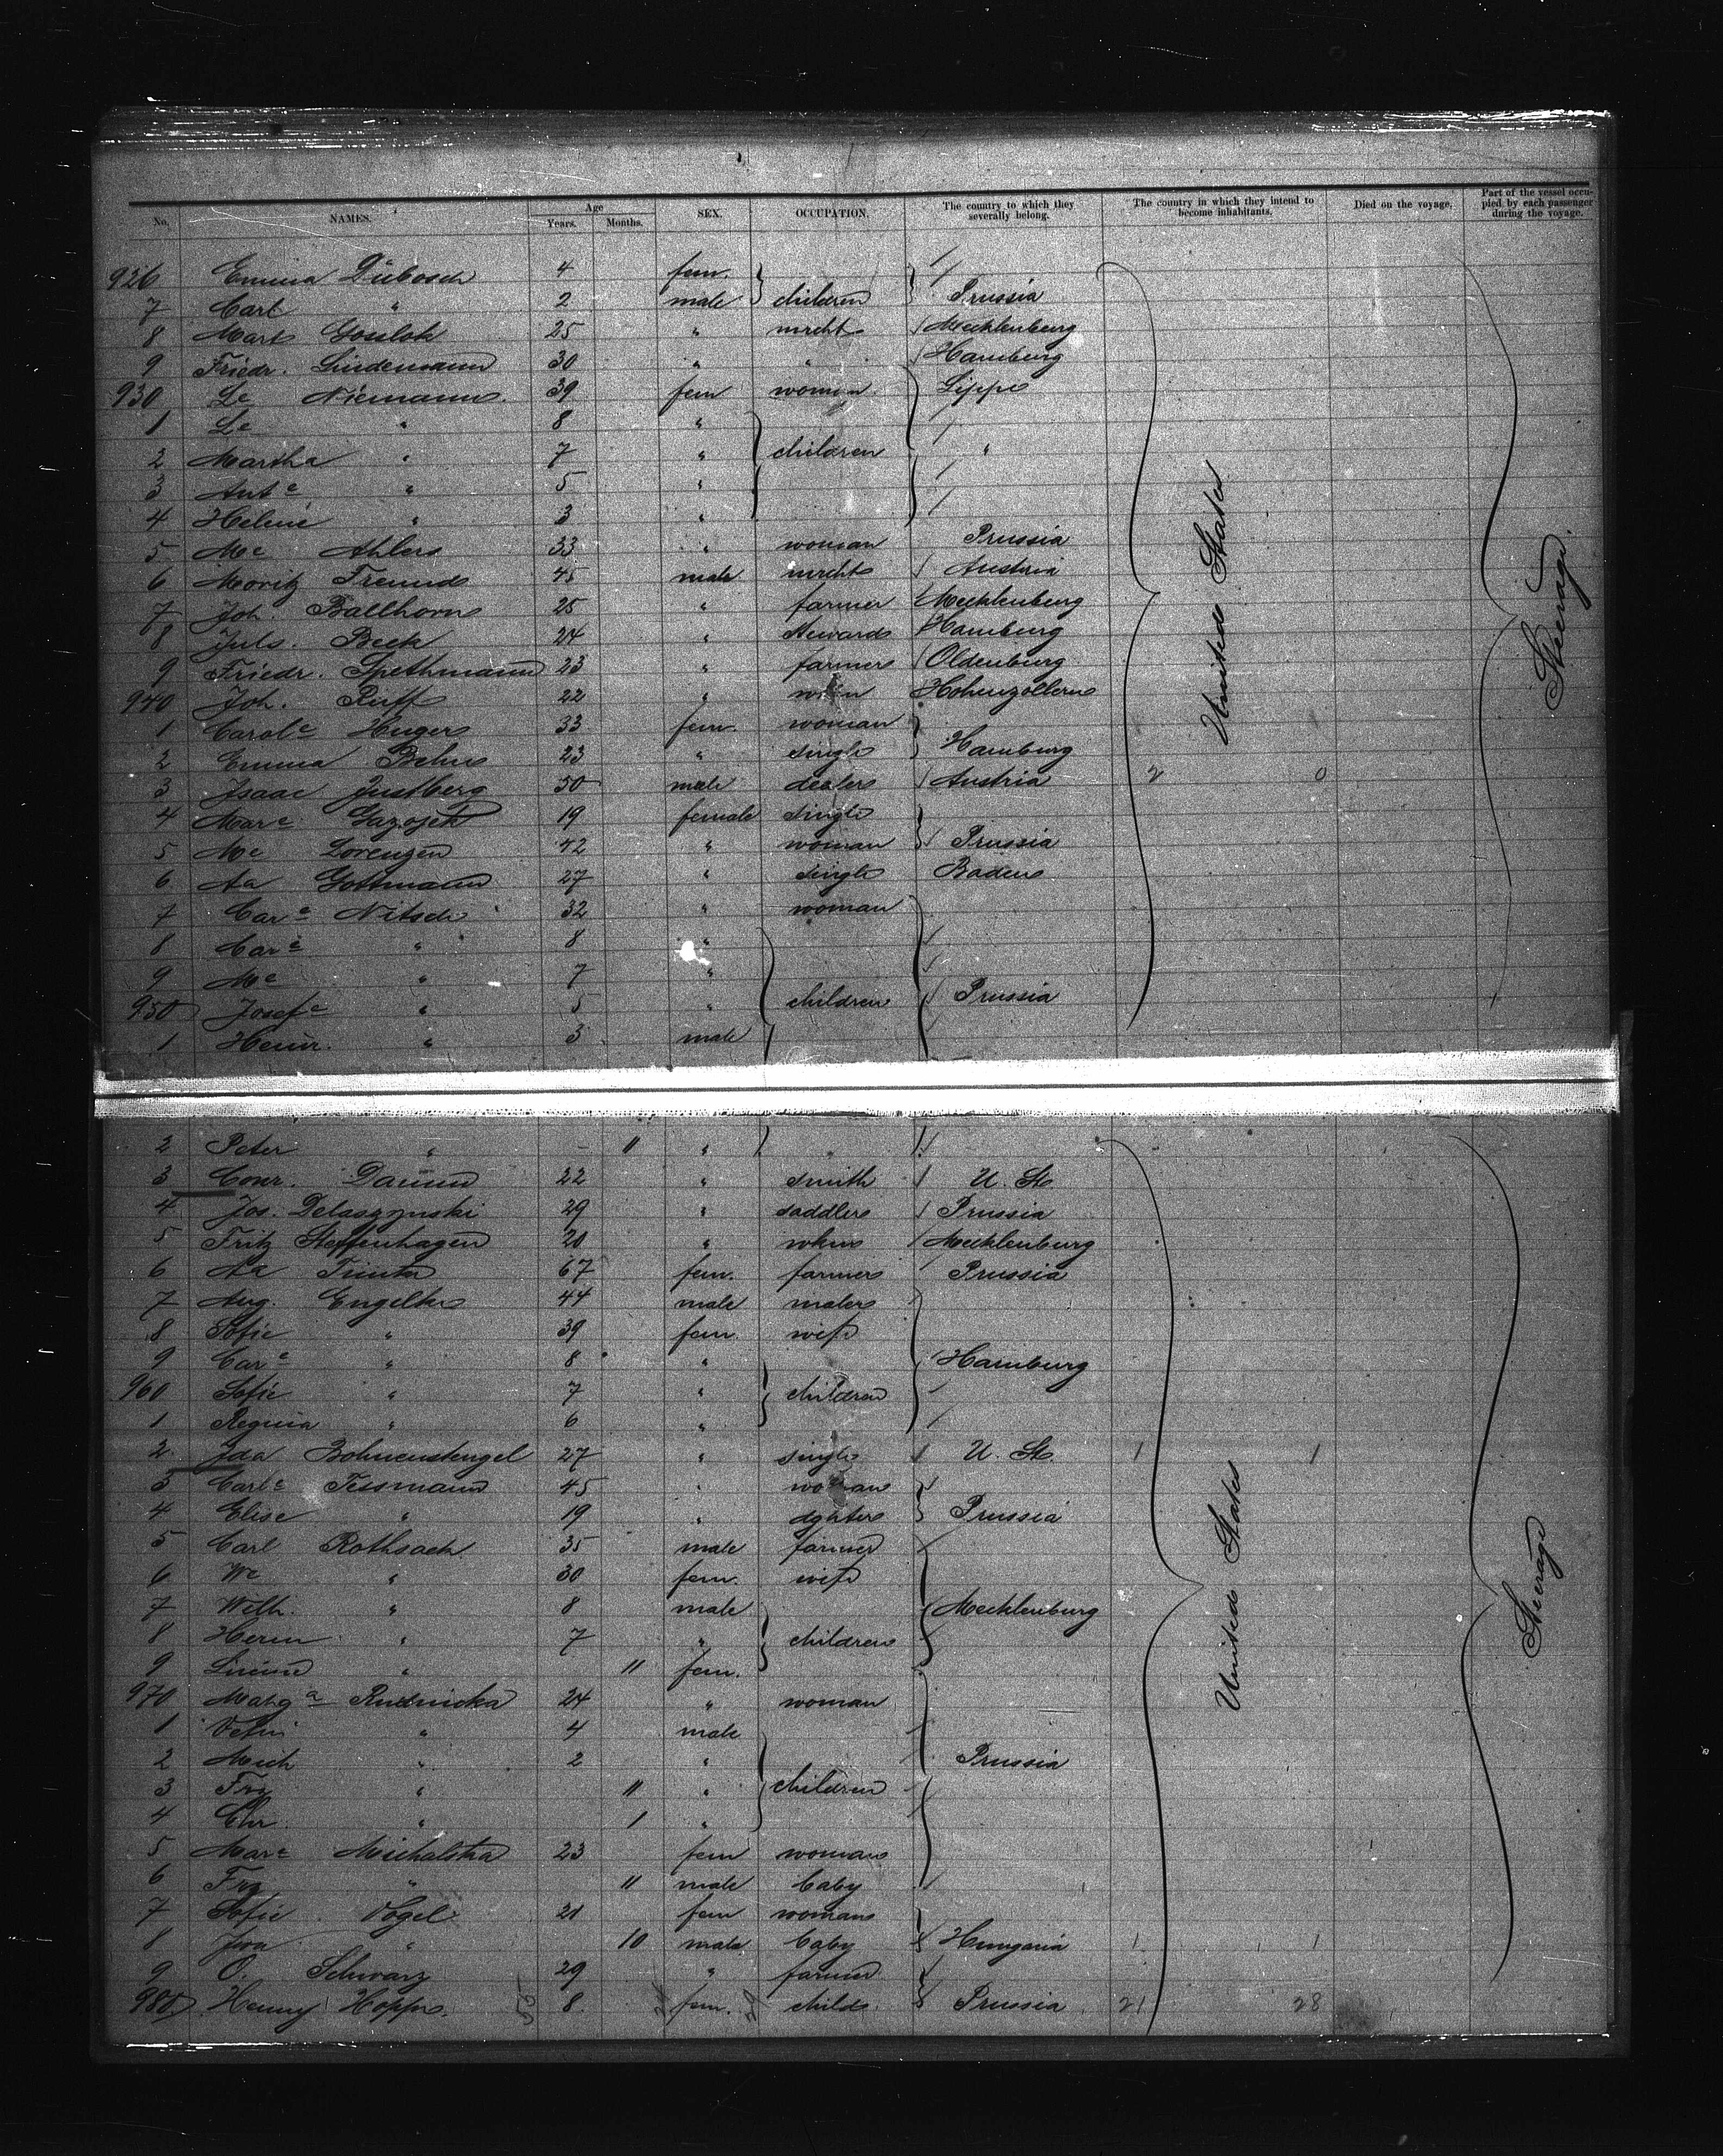 No. NAMES. Age Years. Months. SEX. OCCUPATION. The country to which they severally belong. The country in which they intend to become inhabitants. Died on the voyage. Part of the vessel occupied by each passenger during the voyage.
926 Emma Dübosch 4 fem.
7 Carl " 2 male children Prussia
8 Mart Gosslok 25 " mrcht Mecklenburg
9 Friedr. Lindemann 30 " " Hamburg
930 Le Niemann 39 fem woman Lippe
1 Le " 8 "
2 Martha " 7 " children "
3 Ant e " 5 "
4 Helene " 3 "
5 Me Ahlers 33 " woman Prussia
6 Moritz Freund 45 male mrcht Austria
7 Joh. Ballhorn 25 " farmer Mecklenburg
8 Juls. Beck 24 " steward Hamburg
9 Friedr. Spethmann 23 " farmer Oldenburg
940 Joh. Ruff 22 " Hohenzollern
1 Carole Huger 33 fem. woman
2 Emma Behn 23 " single Hamburg
3 Isaac Justberg 50 male dealer Austria 2 0
4 Mare Gazojek 19 female single
5 Me Lorenzen 42 " woman Prussia
6 Aa Gottmann 27 " single Baden
7 Care Nitsch 32 " woman
8 Care " 8 "
9 Me " 7 "
950 Josefe " 5 " children Prussia
1 Heinr. " 3 male
2 Peter " - 11 "
3 Conr. Damm 22 " smith U. St.
4 Jos. Delaszynski 29 " saddler Prussia
5 Fritz Steffenhagen 20 " wkm Mecklenburg
6 Aa Timta 67 fem. farmer Prussia
7 Aug. Engelke 44 male maler
8 Sofie " 39 fem. wife
9 Care " 8 " Hamburg
960 Sofie " 7 " children
1 Regina " 6 "
2 Ida Bohnenstengel 27 " single U. St. 1 1
3 Carle Tessmann 45 " woman
4 Elise " 19 " dghter Prussia
5 Carl Rothsack 35 male farmer
6 We " 30 fem. wife
7 Wilh. " 8 male Mecklenburg
8 Herm " 7 " children
9 " 11 fem.
970 Marga Rudnicka 24 " woman
1 " 4 male
2 Mich " 2 " Prussia
3 Frz " 11 " children
4 Chr. " 1 "
5 Mare Michalska 23 fem woman
6 Frz " 11 male baby
7 Sofie Vogel 21 fem woman
8 " 10 male baby Hungaria 1 1
9 O. Schwarz 29 " farmer
980 Henny Hopp 8 fem. child Prussia 21 28
United States
Steerage
United States
Steerage